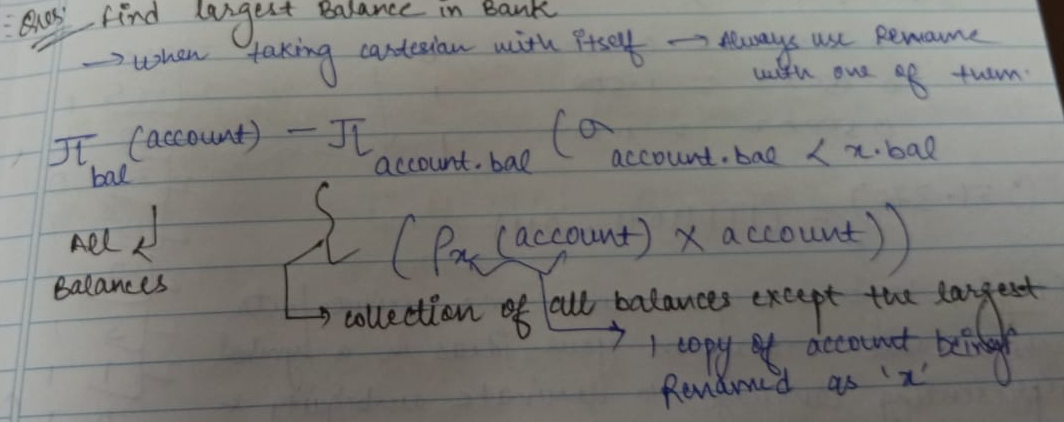 :- Ques: find largest Balance in Bank
→ when taking cartesian with itself → Always use Rename
with one of them.
π bal (account) − π account.bal (σ account.bal < x.bal
(ρx (account) × account))
All Balances
→ collection of all balances except the largest
→ 1 copy of account being
Renamed as 'x'